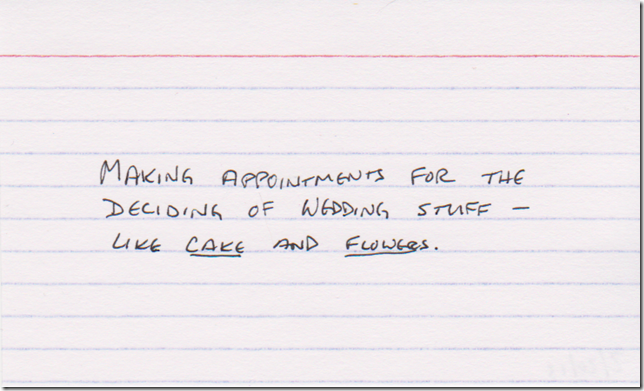 MAKING APPOINTMENTS FOR THE
DECIDING OF WEDDING STUFF –
LIKE CAKE AND FLOWERS.